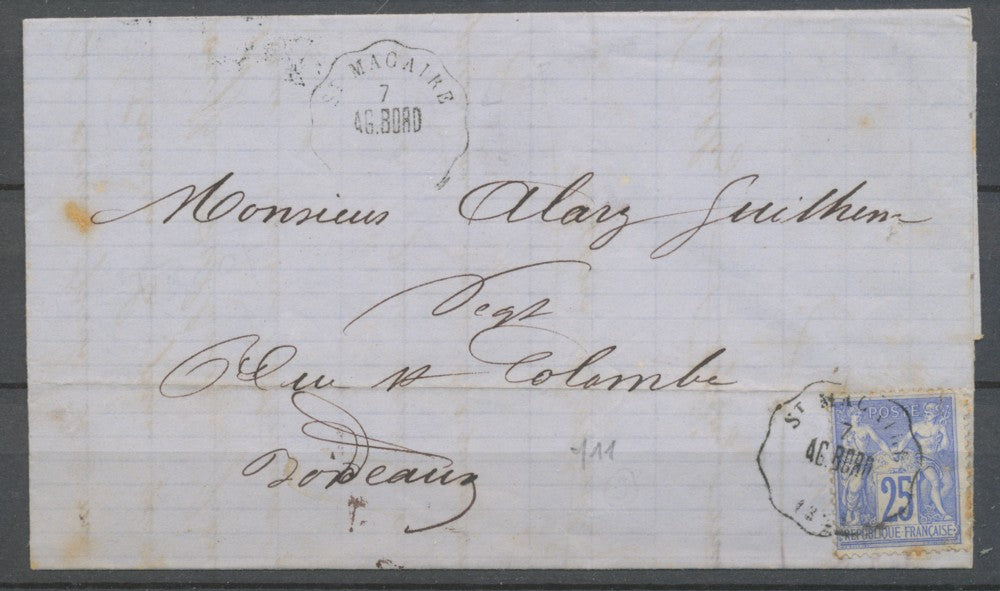 ST MACAIRE
7
AG.BORD
Monsieur Alary Guilhem
Negt
Rue St Colombe
Bordeaux
411
ST MACAIRE
7
AG.BORD
POSTE
25
REPUBLIQUE FRANÇAISE